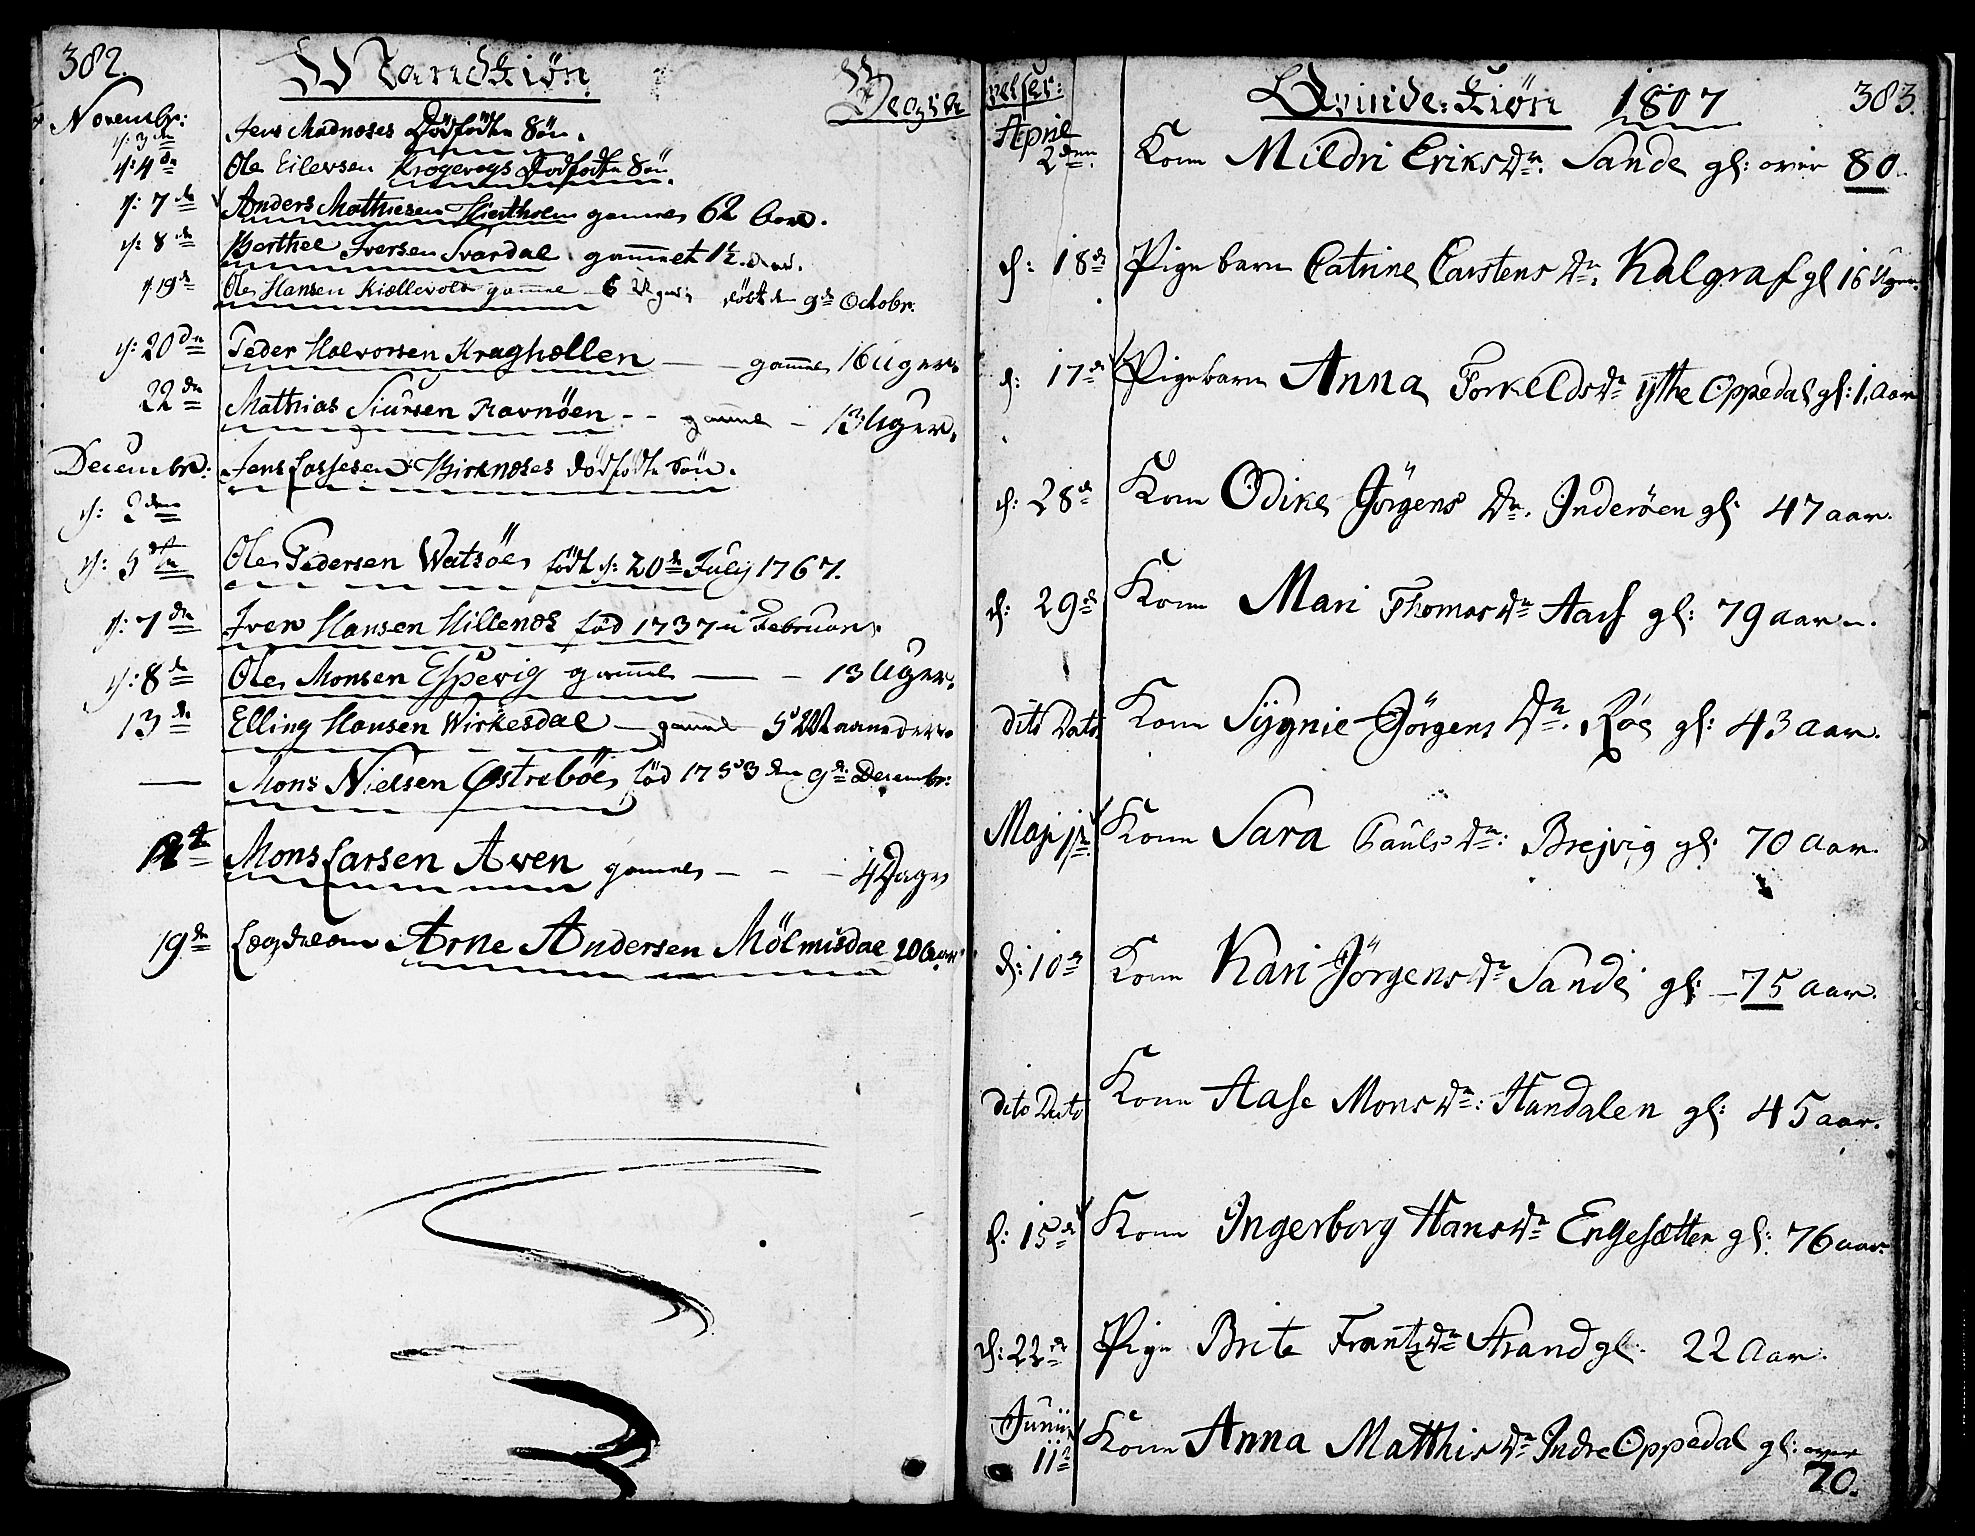 382.
Mandkiøn
Begra
Novembr:
d: 3 dn Jens Madnæses Dödfödte Sön.
d: 4 dn Ole Eilevsen Krogevogs Dödfödte Sön.
d: 7 de Anders Mathiesen Hiertholm gammel 62 Aar.
d: 8 de Berthel Iversen Svardal gammel 1½ Aar.
d 19 de Ole Hansen Kiellevold gammel 6 Uger, födt den 9de Octobr.
d: 20 dn Peder Halvorsen Kraghællen — — gammel 16 Uger.
22 dn Mathias Siursen Ravnöen - - gammel - 13 Uger.
Decembr: Jens Lassesen Birknæses dödfödte Sön.
d: 2 den
d: 5 dn Ole Pedersen Watsöe födt d: 20de July 1767.
d: 7 dn Iver Hansen Hillenæs född 1737 i Februari.
d: 8 de Ole Monsen Espevig gammel — - 13 Uger.
13 de Elling Hansen Wirkesdal — gammel 5 Maaneder.
— Mons Nielsen Østrebøe föd 1753 den 9de Decembr:
Mons Larsen Aven gammel - - - 4 Dage
19 de Lægdslem Arne Andersen Mölmisdal 20 Aar
velser:
Qvinde-Kiøn 1807
383.
April
2den Kone Mildri Eriks Dr. Sande gl: over 80.
d: 18 de Pigebarn Catrine Carstens Dr. Kalgraf gl 16 Uger.
d: 17 de Pigebarn Anna Torkelds Dr ytte Oppedal gl: 1, Aar
d: 28 de Kone Odike Jörgens Dr. Inderöen gl: 47 aar.
d: 29 de Kone Mari Thomas Dr Aas gl: 79 aar.
dito Dato Kone Sygnie Jörgens Dr. Röe gl: 43 aar.
Maji 1te Kone Sara Pauls Dr: Brejvig gl: 70 Aar.
d: 10 de Kone Kari Jörgens Dr Sande gl: - 75 aar.
dito Dato Kone Aase Mons Dr: Handalen gl: 45 aar.
d: 15 de Kone Ingerborg Hans Dr Engesætter gl: 76 aar.
d: 22 de Pige Brite Frantz Dr Strand gl: 22 Aar.
Junii
11te Kone Anna Matthis Dr Indre Oppedal gl: over
70.